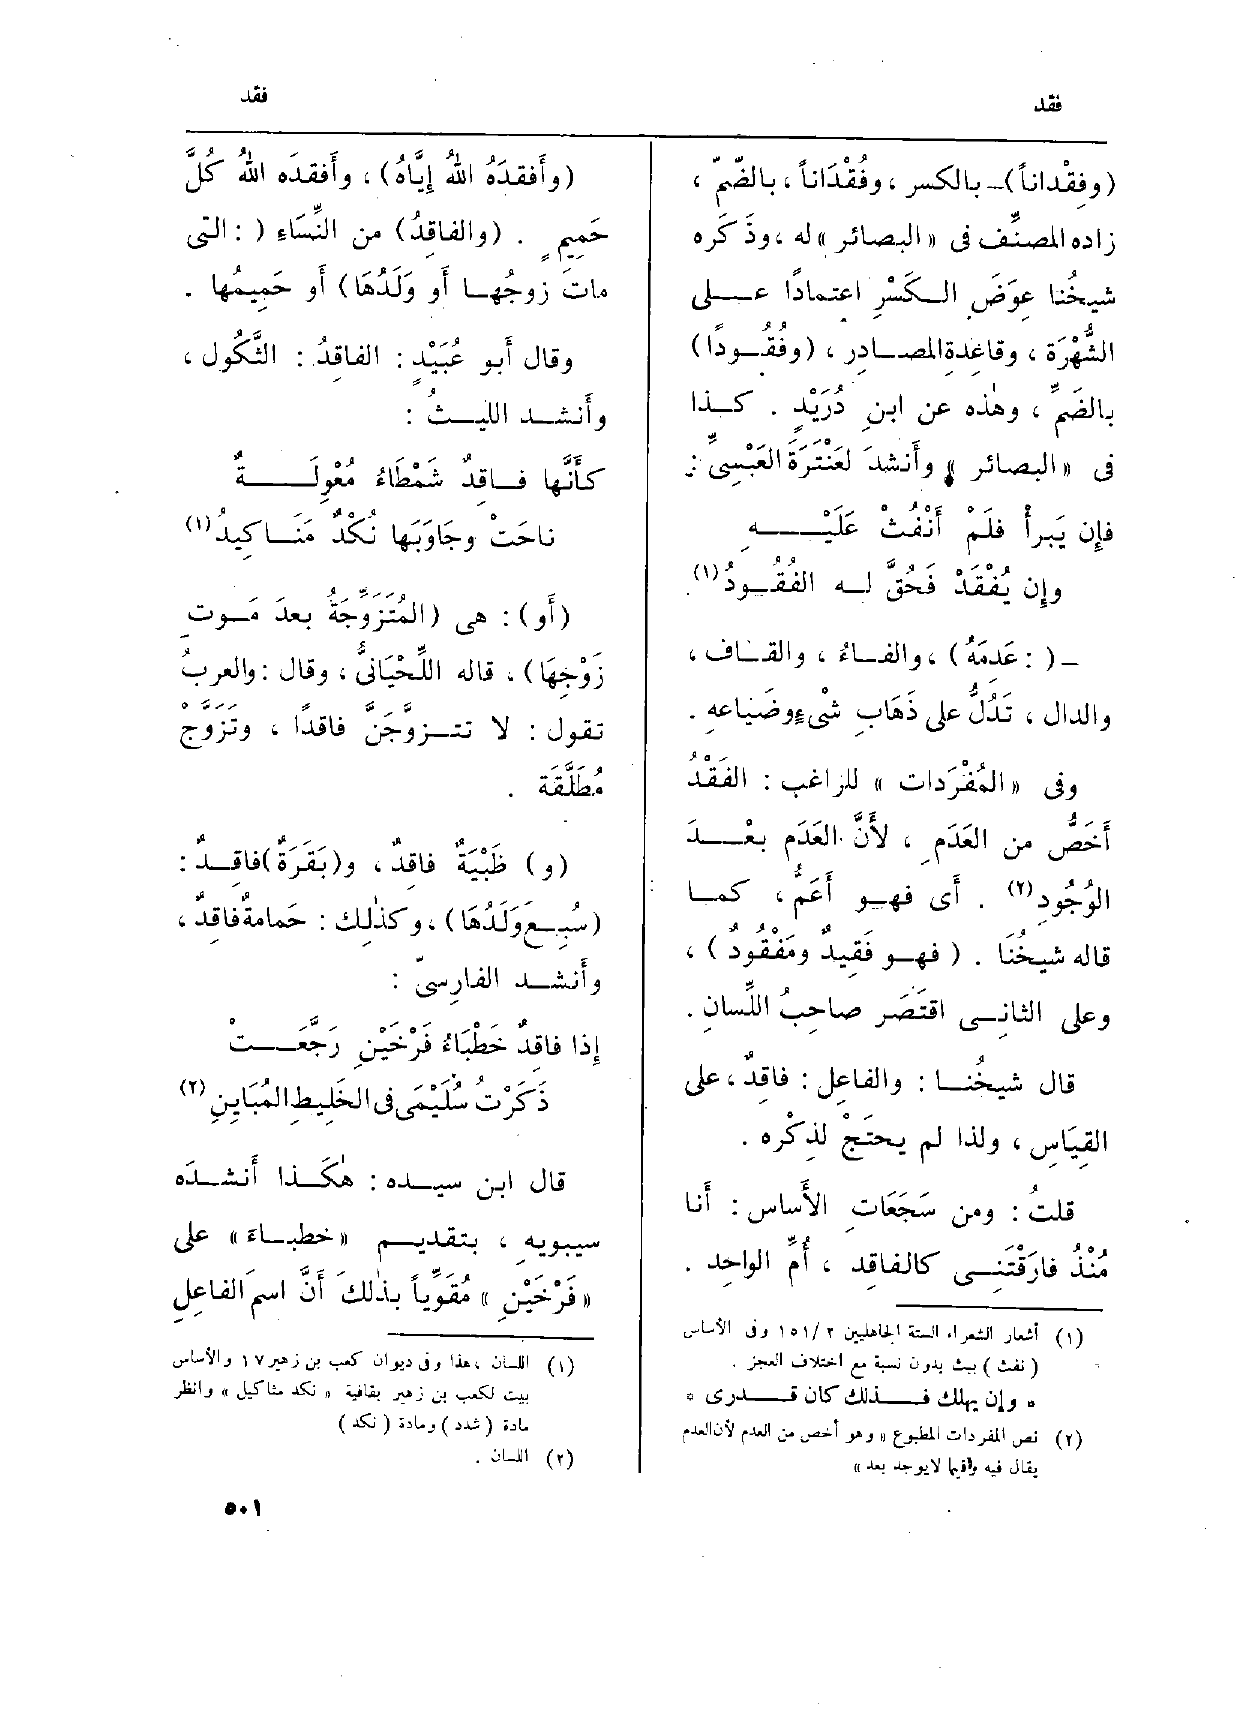 فقد
فقد
(وفِقْداناً) ــ بالكسر ، وفُقْدَاناً ، بالضّمّ ،
زاده المصنِّف فى «البصائر» له ، وذَكَره
شيخُنا عِوَضَ الـكَسْرِ اعتمادًا عـلى
الشُّهْرَة ، وقاعِدة المصـادر ، (وفُقُـودًا)
بالضَّمِّ ، وهٰذه عن ابنِ دُرَيْدٍ . كـذا
فى «البصائر» وأَنشدَ لعَنْتَرَةَ العَبْسِىِّ :
فإِن يَبرأْ فلَمْ أَنْفُثْ عَلَيْــه
وإِن يُفْقَدْ فَحُقَّ لـه الفُقُـودُ (١)
ــ ( : عَدِمَهُ) ، والفـاءُ ، والقـاف ،
والدال ، تَدُلُّ على ذَهَابِ شْىءٍ وضَيَاعه .
وفى «المُفْرَدات» للراغب : الفَقْدُ
أَخَصُّ من العَدَمِ ، لأَنَّ العَدَم بعْـدَ
الوُجُودِ (٢) . أَى فهـو أَعَمُّ ، كمـا
قاله شيخُنَا . ( فهـو فَقِيدٌ ومَفْقُودٌ ) ،
وعلى الثانـى اقتَصَر صاحِبُ اللِّسانِ .
قال شيخُنـا : والفاعِل : فاقِدٌ ، على
القِيَاس ، ولذا لم يحتَجْ لذِكْره .
قلتُ : ومن سَجَعَاتِ الأَساس : أَنا
مُنْذُ فارَقْتَنِـى كالفاقد ، أُمِّ الواحِد .
(١) أشعار الشعراء الستة الجاهليين ٢ / ١٥١ وفى الأساس
( نفث ) بيت بدون نسبة مع اختلاف العجز .
* وإن يهلك فـذلك كان قـدرى *
(٢) نص المفردات المطبوع « وهو أخص من العدم لأن العدم
يقال فيه وفيما لا يوجد بعد »
(وأَفقدَهُ اللهُ إِيَّاهُ) ، وأَفقدَه اللهُ كُلَّ
حَمِيمٍ . (والفاقِدُ) من النِّسَاءِ ( : التى
ماتَ زوجُهـا أَو وَلَدُهَا) أَو حَمِيمُها .
وقال أَبو عُبَيْدٍ : الفاقدُ : الثَّكُول ،
وأَنشـد الليـثُ :
كأَنَّها فـاقِدٌ شَمْطَاءُ مُعْوِلَــةٌ
ناحَتْ وجَاوَبَها نُكْدٌ مَنَـاكِيدُ (١)
(أَو) : هى (المُتَزَوِّجَةُ بعدَ مَـوتِ
زَوْجِهَا) ، قاله اللِّحْيَانىُّ ، وقال : والعربُ
تقول : لا تتـزوَّجَنَّ فاقدًا ، وتَزَوَّجْ
مُطَلَّقَة .
(و) ظَبْيَةٌ فاقدٌ ، و(بَقَرَةٌ) فاقـدٌ :
(سُبِـعَ وَلَدُهَا) ، وكذٰلك : حَمامةٌ فاقِدٌ ،
وأَنشـد الفارِسىّ :
إِذا فاقدٌ خَطْبَاءُ فَرْخَيْنِ رَجَّعَــتْ
ذَكَرْتُ سُلَيْمَى فى الخَلِيطِ المُبَاينِ (٢)
قال ابن سيـده : هٰكـذا أَنشـدَه
سيبويهِ ، بتقديـم «خطبـاءَ» على
«فَرْخَيْنِ» مُقَوِّياً بذٰلكَ أَنَّ اسمَ الفاعِلِ
(١) اللسان ، هذا وفى ديوان كعب بن زهير ١٧ والأساس
بيت لكعب بن زهير بقافية « نكد مثاكيل » وانظر
مادة ( شدد ) ومادة ( نكد )
(٢) اللسان .
٥٠١